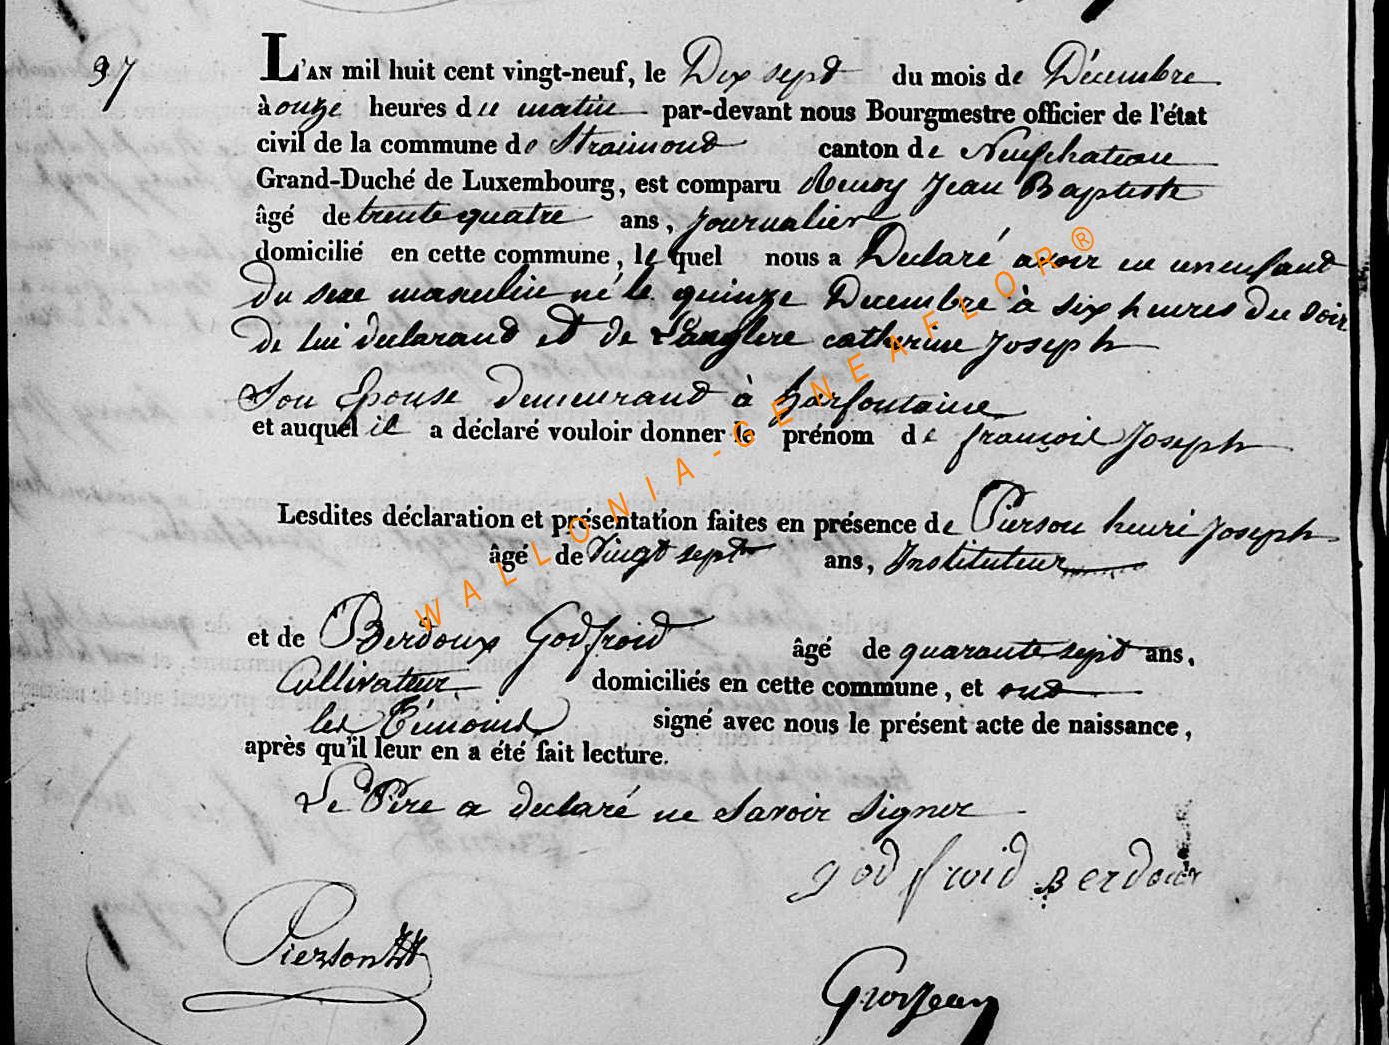 37
L'AN mil huit cent vingt-neuf, le Dix sept du mois de Décembre
à onze heures du matin par-devant nous Bourgmestre officier de l'état
civil de la commune de Straimont canton de Neufchateau
Grand-Duché de Luxembourg, est comparu Henry Jean Baptiste
âgé de trente quatre ans, journalier
domicilié en cette commune, lequel nous a Déclaré avoir eu un enfant
du sexe masculin né le quinze Decembre à six heures du soir
de lui declarant et de catherine Joseph
Son Epouse demeurant à harfontaine
et auquel il a déclaré vouloir donner le prénom de françois Joseph
Lesdites déclaration et présentation faites en présence de Pierson henri Joseph
âgé de Vingt sept ans, Instituteur
et de Berdoux Godfroid âgé de quarante sept ans,
Cultivateur domiciliés en cette commune, et ont
les Témoins signé avec nous le présent acte de naissance,
après qu'il leur en a été fait lecture.
Le Père a declaré ne Savoir Signer
godfroid Berdoux
Pierson HJ
Grosjean
WALLONIA-GENEAFLOR®